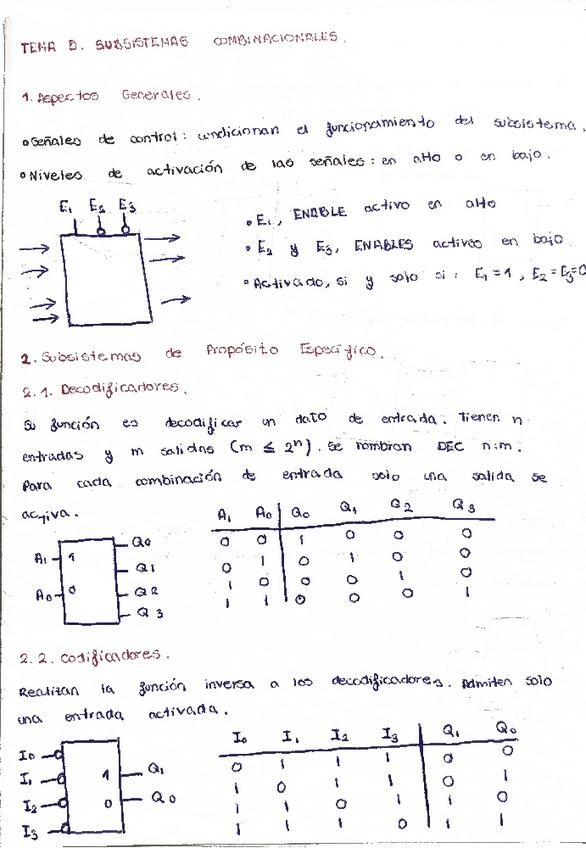 TEMA 5. SUBSISTEMAS COMBINACIONALES.
1. Aspectos Generales.
• Señales de control: condicionan el funcionamiento del subsistema.
• Niveles de activación de las señales: en alto o en bajo.
E1 E2 E3
• E1, ENABLE activo en alto
• E2 y E3, ENABLES activos en bajo
• Activado, si y solo si: E1 = 1, E2 = E3 = 0
2. Subsistemas de Propósito Específico.
2.1. Decodificadores.
Su función es decodificar un dato de entrada. Tienen n
entradas y m salidas (m ≤ 2^n). Se nombran DEC n:m.
Para cada combinación de entrada solo una salida se
activa.
A1 A0 Q0 Q1 Q2 Q3
0 0 1 0 0 0
0 1 0 1 0 0
1 0 0 0 1 0
1 1 0 0 0 1
A1 1 Q0
Q1
A0 0 Q2
Q3
2.2. Codificadores.
Realizan la función inversa a los decodificadores. Admiten solo
una entrada activada.
I0 I1 I2 I3 Q1 Q0
0 1 1 1 0 0
1 0 1 1 0 1
1 1 0 1 1 0
1 1 1 0 1 1
I0
I1 1 Q1
I2 0 Q0
I3